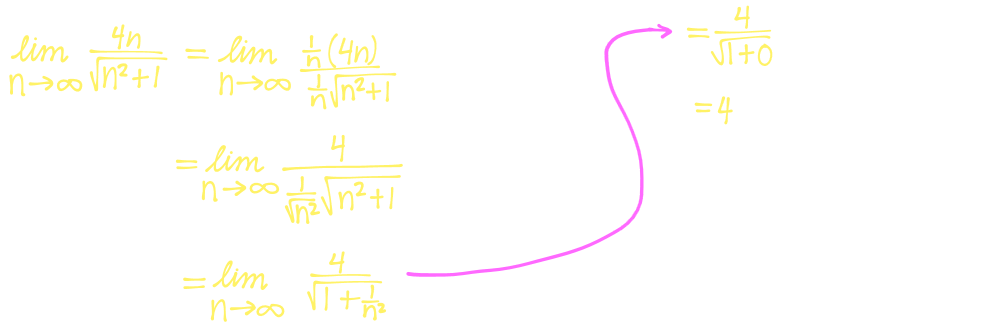 lim n→∞ 4n/√(n²+1) = lim n→∞ (1/n (4n))/(1/n √(n²+1))
= lim n→∞ 4/(1/√n² √(n²+1))
= lim n→∞ 4/√(1+1/n²)
= 4/√(1+0)
= 4